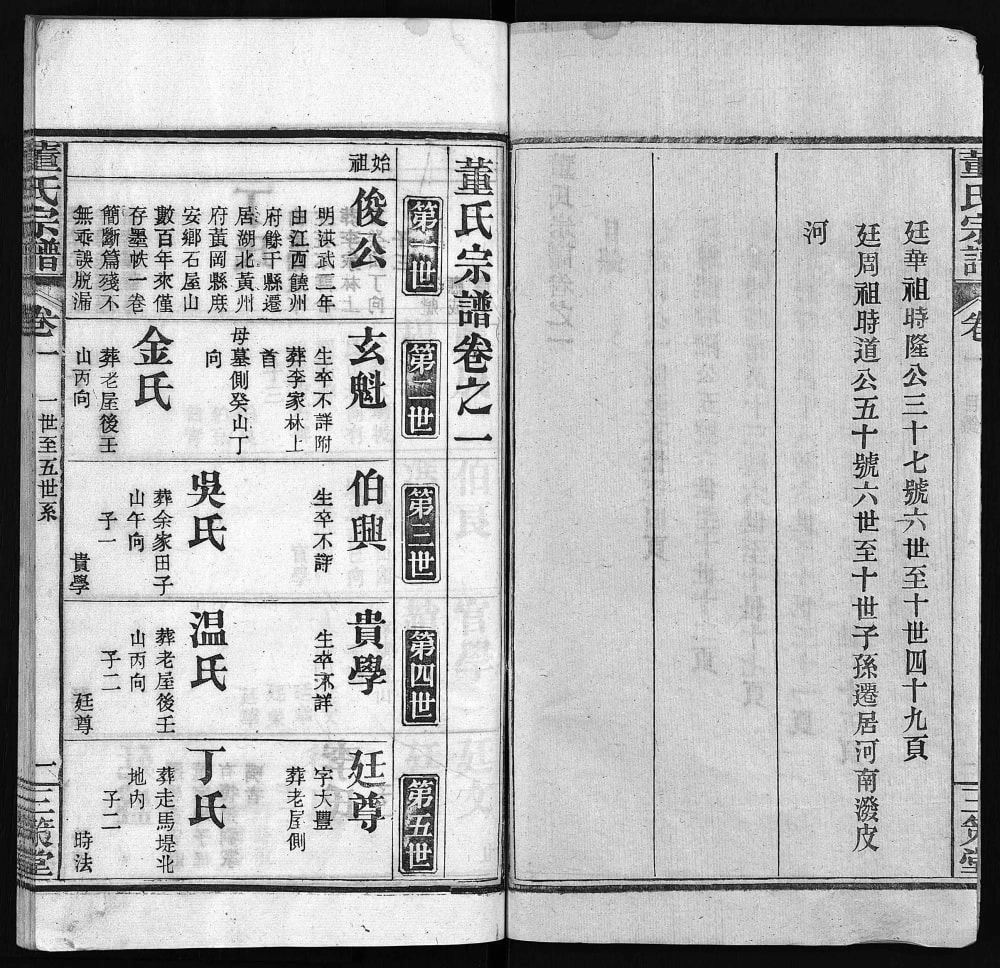 廷華祖時隆公三十七號六世至十世四十九頁
廷周祖時道公五十號六世至十世子孫遷居河南潑皮
河
董氏宗譜
卷一
目錄
三策堂
董氏宗譜卷之一
第一世
始祖
俊公
明洪武二年
由江西饒州
府餘干縣遷
居湖北黃州
府黃岡縣庶
安鄉石屋山
數百年來僅
存墨帙一卷
簡斷篇殘不
無乖誤脱漏
第二世
玄魁
生卒不詳附
葬李家林上
首
母墓側癸山丁
向
金氏
葬老屋後壬
山丙向
第三世
伯興
生卒不詳
吳氏
葬余家田子
山午向
子一
貴學
第四世
貴學
生卒不詳
温氏
葬老屋後壬
山丙向
子二
廷尊
第五世
廷尊
字大豐
葬老屋側
丁氏
葬走馬堤北
地内
子二
時法
董氏宗譜
卷一
一世至五世系
一
三策堂